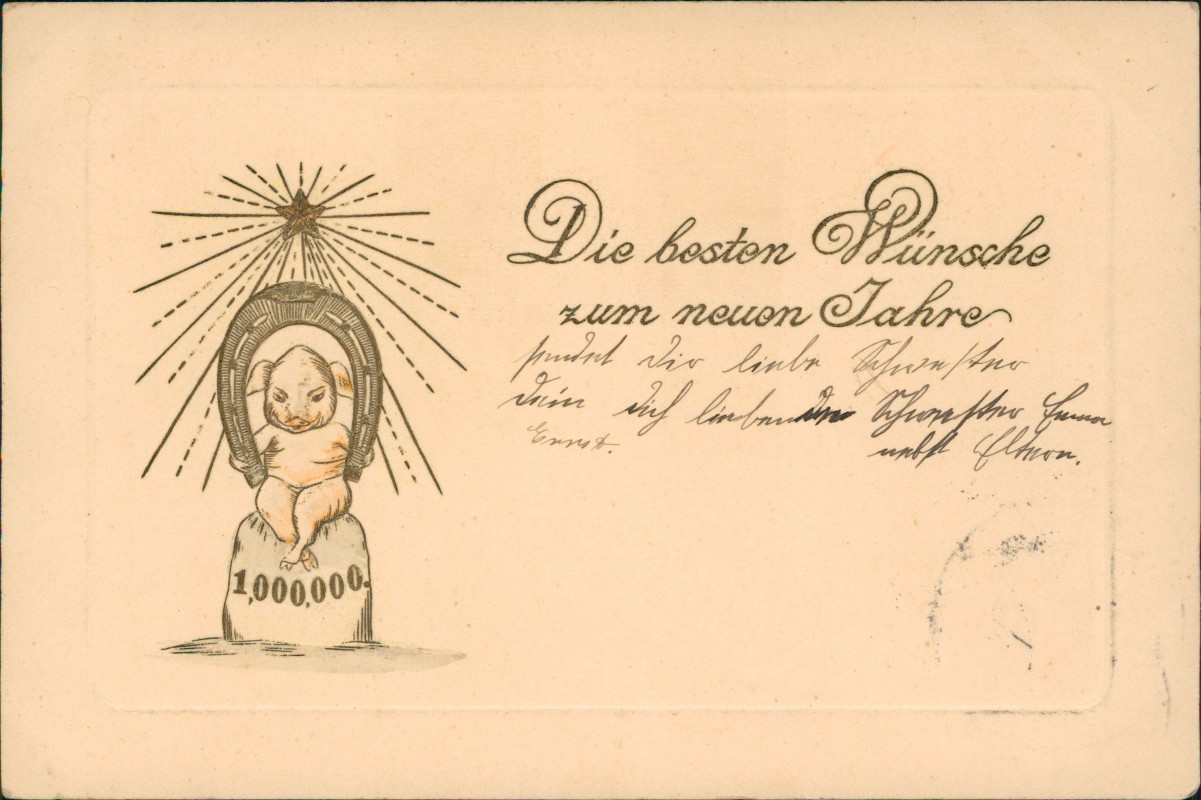 Die besten Wünsche
zum neuen Jahre
sendet dir liebe Schwester
dein dich liebenden Schwester Emma
Ernst.
nebst Eltern.
1,000,000.